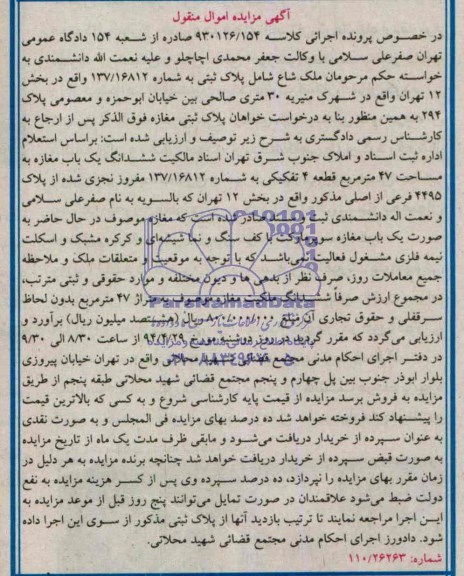 آگهی مزایده اموال منقول
در خصوص پرونده اجرائی کلاسه ۹۳۰۱۲۶/۱۵۴ صادره از شعبه ۱۵۴ دادگاه عمومی
تهران صفرعلی سلامی با وکالت جعفر محمدی اچاچلو و علیه نعمت الله دانشمندی به
خواسته حکم مرحومان ملک شاع شامل پلاک ثبتی به شماره ۱۳۷/۱۶۸۱۲ واقع در بخش
۱۲ تهران واقع در شهرک منیریه ۳۰ متری صالحی بین خیابان ابوحمزه و معصومی پلاک
۲۹۴ به همین منظور بنا به درخواست خواهان پلاک ثبتی مغازه فوق الذکر پس از ارجاع به
کارشناس رسمی دادگستری به شرح زیر توصیف و ارزیابی شده است: براساس استعلام
اداره ثبت اسناد و املاک جنوب شرق تهران اسناد مالکیت ششدانگ یک باب مغازه به
مساحت ۴۷ مترمربع قطعه ۴ تفکیکی به شماره ۱۳۷/۱۶۸۱۲ مفروز نجزی شده از پلاک
۴۴۹۵ فرعی از اصلی مذکور واقع در بخش ۱۲ تهران که بالسویه به نام صفرعلی سلامی
و نعمت اله دانشمندی ثبت صادر شده است که مغازه موصوف در حال حاضر به
صورت یک باب مغازه سوپرمارکت با کف سنگ و نما شیشه‌ای و کرکره مشبک و اسکلت
نیمه فلزی مشغول فعالیت می‌باشد که با توجه به موقعیت و متعلقات ملک و ملاحظه
جمیع معاملات روز، صرف نظر از بدهی ها و دیون مختلفه و موارد حقوقی و ثبتی مترتب،
در مجموع ارزش صرفاً ششدانگ ملکیت مغازه موصوف به متراژ ۴۷ مترمربع بدون لحاظ
سرقفلی و حقوق تجاری آن مبلغ ریال (هشتصد میلیون ریال) برآورد و
ارزیابی می‌گردد که مقرر گردید در روز دوشنبه مورخ ۹۴/۴/۲۹ از ساعت ۸/۳۰ الی ۹/۳۰
در دفتر اجرای احکام مدنی مجتمع قضائی شهید محلاتی واقع در تهران خیابان پیروزی
بلوار ابوذر جنوب بین پل چهارم و پنجم مجتمع قضائی شهید محلاتی طبقه پنجم از طریق
مزایده به فروش برسد مزایده از قیمت پایه کارشناسی شروع و به کسی که بالاترین قیمت
را پیشنهاد کند فروخته خواهد شد ده درصد بهای مزایده فی المجلس و به صورت نقدی
به عنوان سپرده از خریدار دریافت می‌شود و مابقی ظرف مدت یک ماه از تاریخ مزایده
به صورت قبض سپرده از خریدار دریافت خواهد شد چنانچه برنده مزایده به هر دلیل در
زمان مقرر بهای مزایده را نپردازد، ده درصد سپرده وی پس از کسر هزینه مزایده به نفع
دولت ضبط می‌شود علاقمندان در صورت تمایل می‌توانند پنج روز قبل از موعد مزایده به
این اجرا مراجعه نمایند تا ترتیب بازدید آنها از پلاک ثبتی مذکور از سوی این اجرا داده
شود. دادورز اجرای احکام مدنی مجتمع قضائی شهید محلاتی.
شماره: ۱۱۰/۲۶۲۶۳